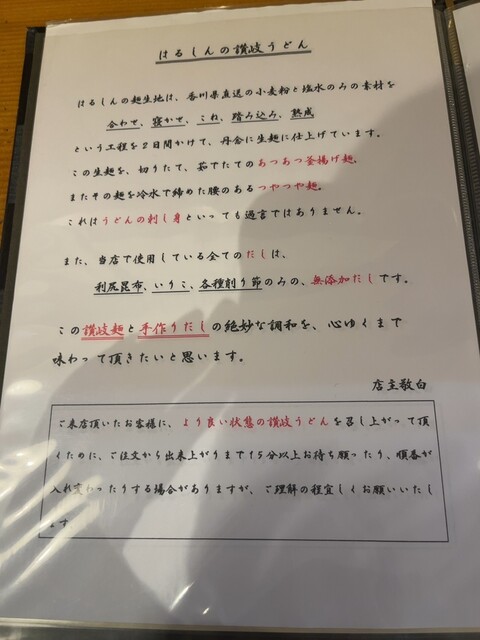 はるしんの讃岐うどん
はるしんの麺生地は、香川県直送の小麦粉と塩水のみの素材を
合わせ、寝かせ、こね、踏み込み、熟成
という工程を2日間かけて、丹念に生麺に仕上げています。
この生麺を、切りたて、茹でたてのあつあつ釜揚げ麺。
またその麺を冷水で締めた腰のあるつやつや麺。
これはうどんの刺し身といっても過言ではありません。
また、当店で使用している全てのだしは、
利尻昆布、いりこ、各種削り節のみの、無添加だしです。
この讃岐麺と手作りだしの絶妙な調和を、心ゆくまで
味わって頂きたいと思います。
店主敬白
ご来店頂いたお客様に、より良い状態の讃岐うどんを召し上がって頂
くために、ご注文から出来上がりまで15分以上お待ち願ったり、順番が
入れ変わったりする場合がありますが、ご理解の程宜しくお願いいたし
ます。